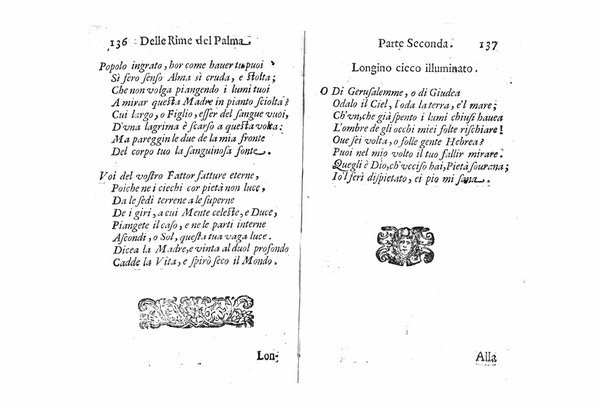 136 Delle Rime del Palma
Popolo ingrato, hor come hauer tu puoi
Sì fero senso Alma sì cruda, e stolta;
Che non volga piangendo i lumi tuoi
A mirar questa Madre in pianto sciolta?
Cui largo, o Figlio, esser del sangue vuoi,
D'vna lagrima è scarso a questa volta:
Ma pareggin le due de la mia fronte
Del corpo tuo la sanguinosa fonte.
Voi del vostro Fattor fatture eterne,
Poiche ne i ciechi cor pietà non luce,
Da le sedi terrene a le superne
De i giri, a cui Mente celeste, e Duce,
Piangete il caso, e ne le parti interne
Ascondi, o Sol, questa tua vaga luce.
Dicea la Madre, e vinta al duol profondo
Cadde la Vita, e spirò seco il Mondo.
Lon-
Parte Seconda. 137
Longino cieco illuminato.
O Di Gerusalemme, o di Giudea
Odalo il Ciel, l'oda la terra, e'l mare;
Ch'vn, che già spento i lumi chiusi hauea
L'ombre de gli occhi miei folte rischiare!
Oue sei volta, o folle gente Hebrea?
Puoi nel mio volto il tuo fallir mirare.
Quegli è Dio, ch'vcciso hai, Pietà sourana;
Io'l ferì dispietato, ei pio mi sana.
Alla